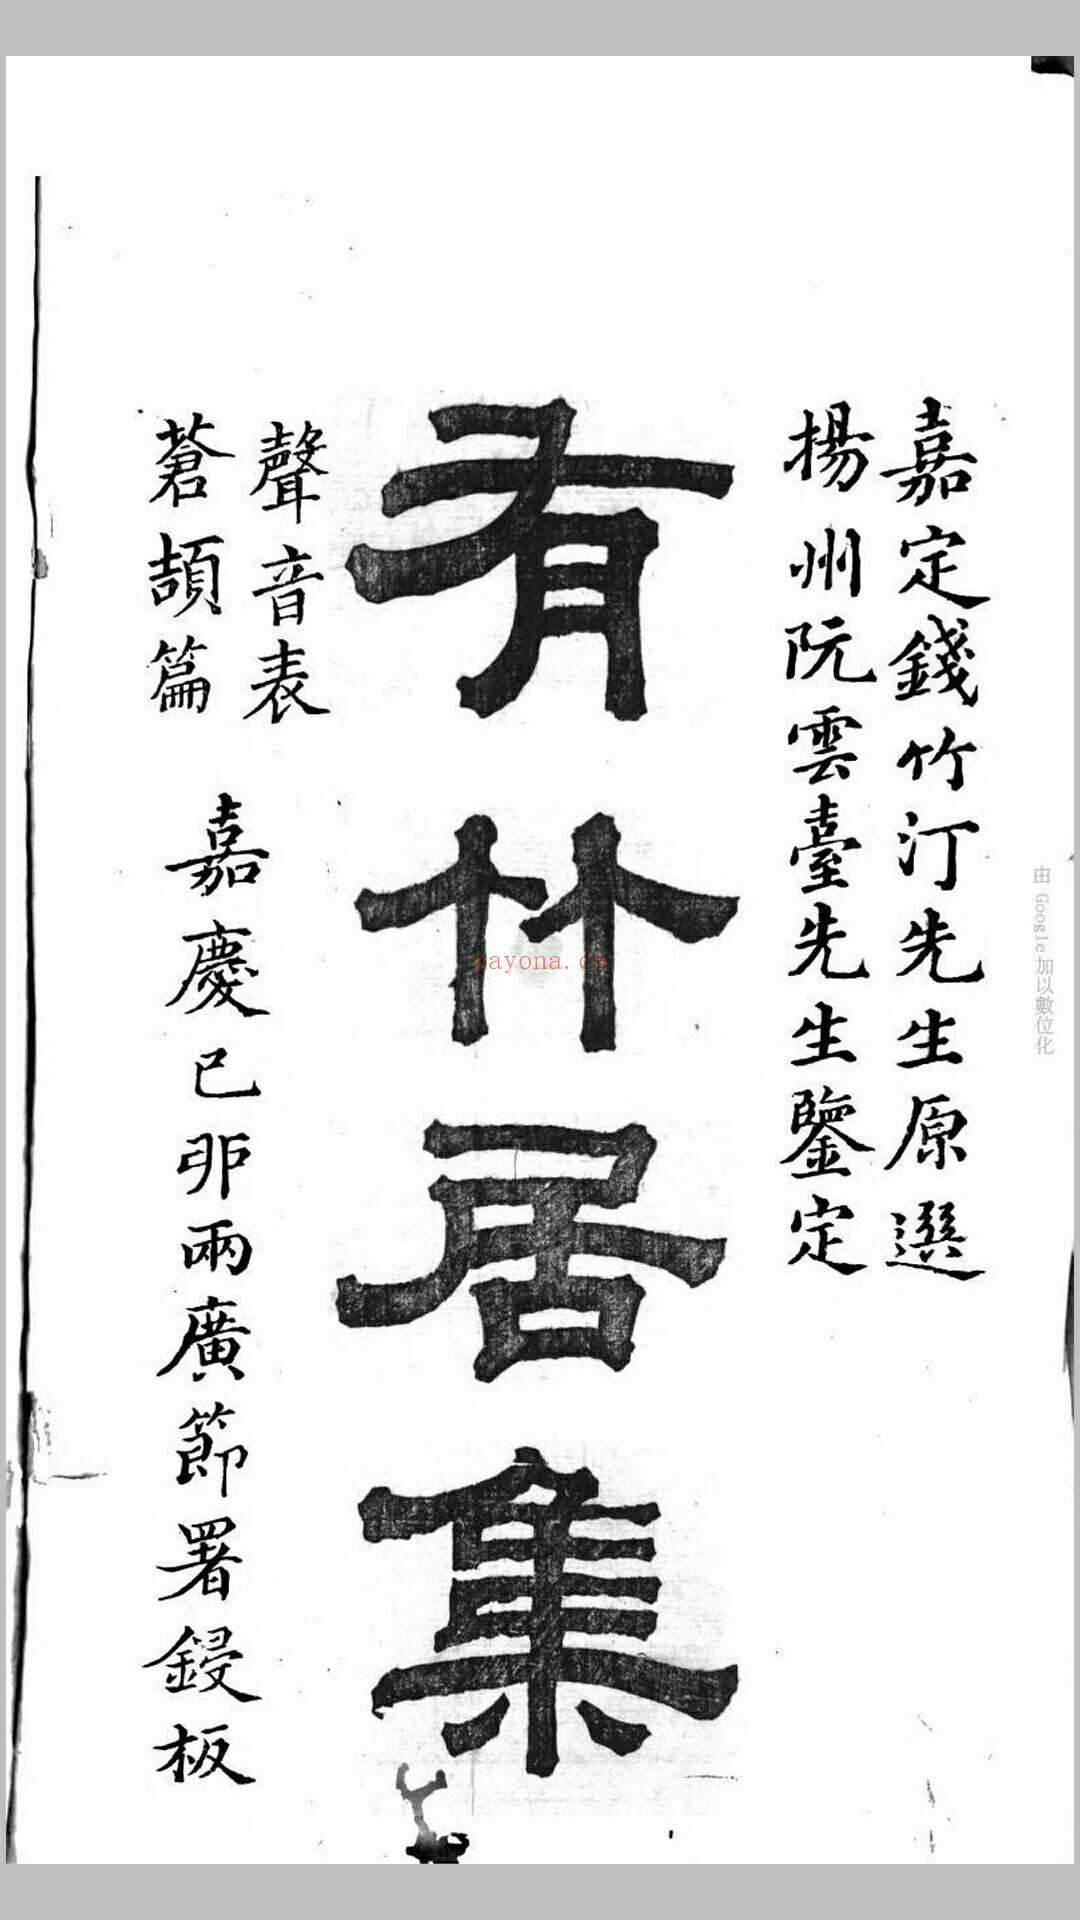 嘉定錢竹汀先生原選
揚州阮雲臺先生鑒定
有竹居集
聲音表
蒼頡篇
嘉慶已卯兩廣節署鋟板
由 Google 加以數位化
nayona.cn